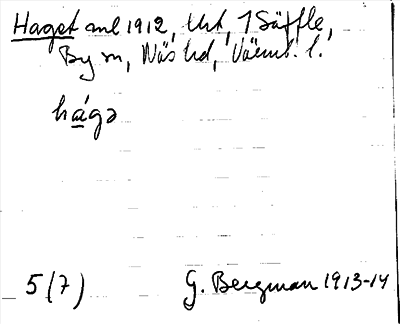 Haget anl 1912, Uht, 1 Säffle,
By sn, Näs hd, Värml. l.
hágə
5(7) G. Bergman 1913-14